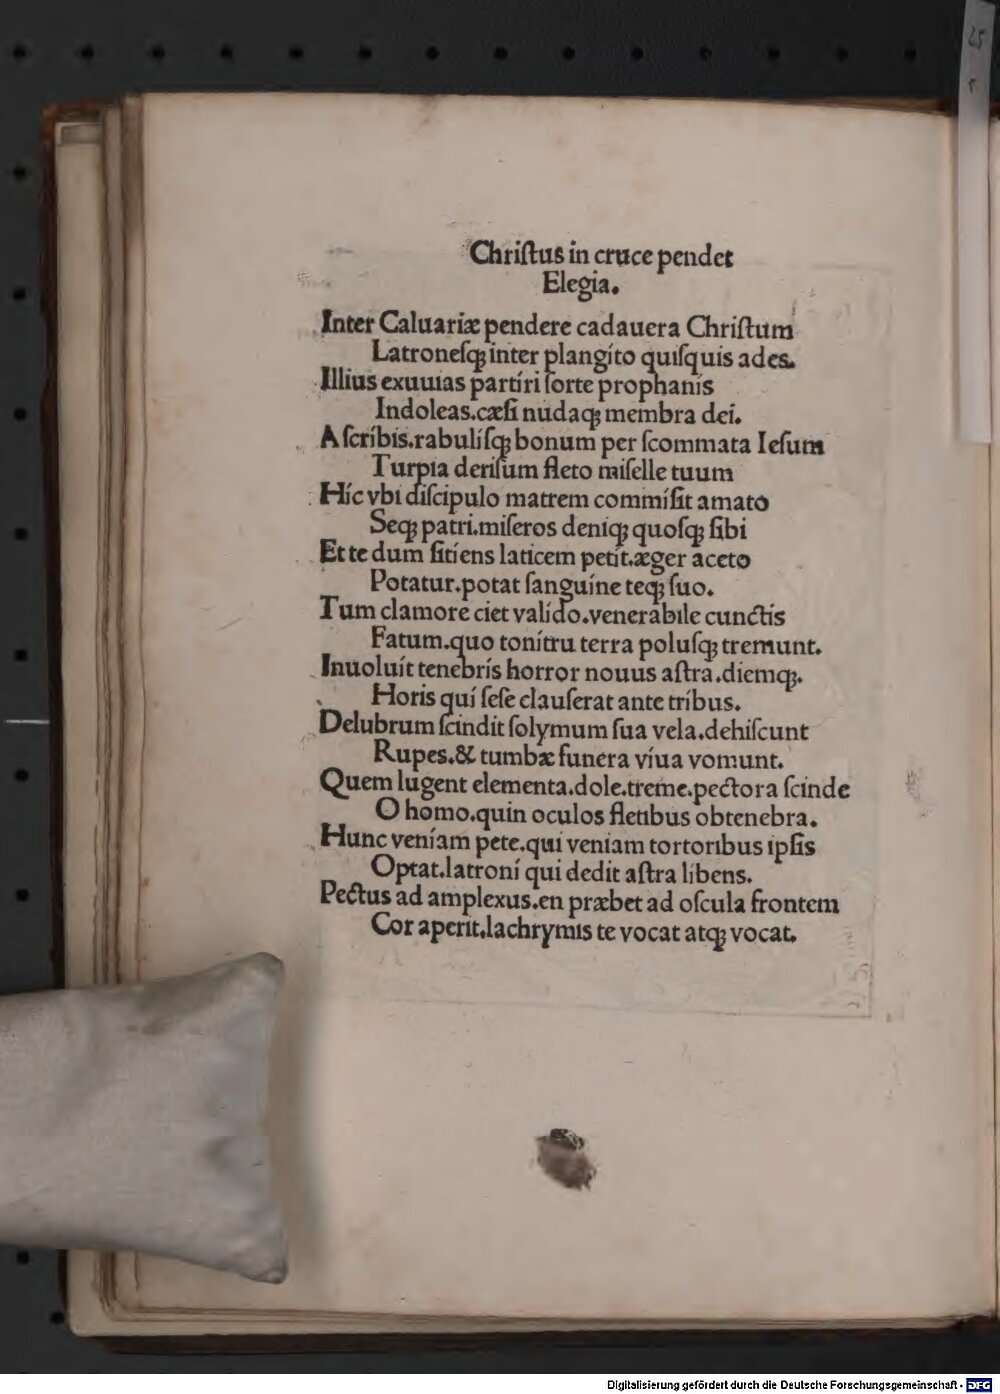 Chriſtus in cruce pendet
Elegia.
Inter Caluariæ pendere cadauera Chriſtum
Latroneſqꝫ inter plangito quiſquis ades.
Illius exuuias partiri ſorte prophanis
Indoleas.cæſi nudaqꝫ membra dei.
A ſcribis.rabuliſqꝫ bonum per ſcommata Ieſum
Turpia deriſum fleto miſelle tuum
Hic vbi diſcipulo matrem commiſit amato
Seqꝫ patri.miſeros deniqꝫ quoſqꝫ ſibi
Et te dum ſitiens laticem petit.æger aceto
Potatur.potat ſanguine teqꝫ ſuo.
Tum clamore ciet valido.venerabile cunctis
Fatum.quo tonitru terra poluſqꝫ tremunt.
Inuoluit tenebris horror nouus aſtra.diemqꝫ.
Horis qui ſeſe clauſerat ante tribus.
Delubrum ſcindit ſolymum ſua vela.dehiſcunt
Rupes.& tumbæ funera viua vomunt.
Quem lugent elementa.dole.treme.pectora ſcinde
O homo.quin oculos fletibus obtenebra.
Hunc veniam pete.qui veniam tortoribus ipſis
Optat.latroni qui dedit aſtra libens.
Pectus ad amplexus.en præbet ad oſcula frontem
Cor aperit.lachrymis te vocat atqꝫ vocat.
Digitalisierung gefördert durch die Deutsche Forschungsgemeinschaft - DFG